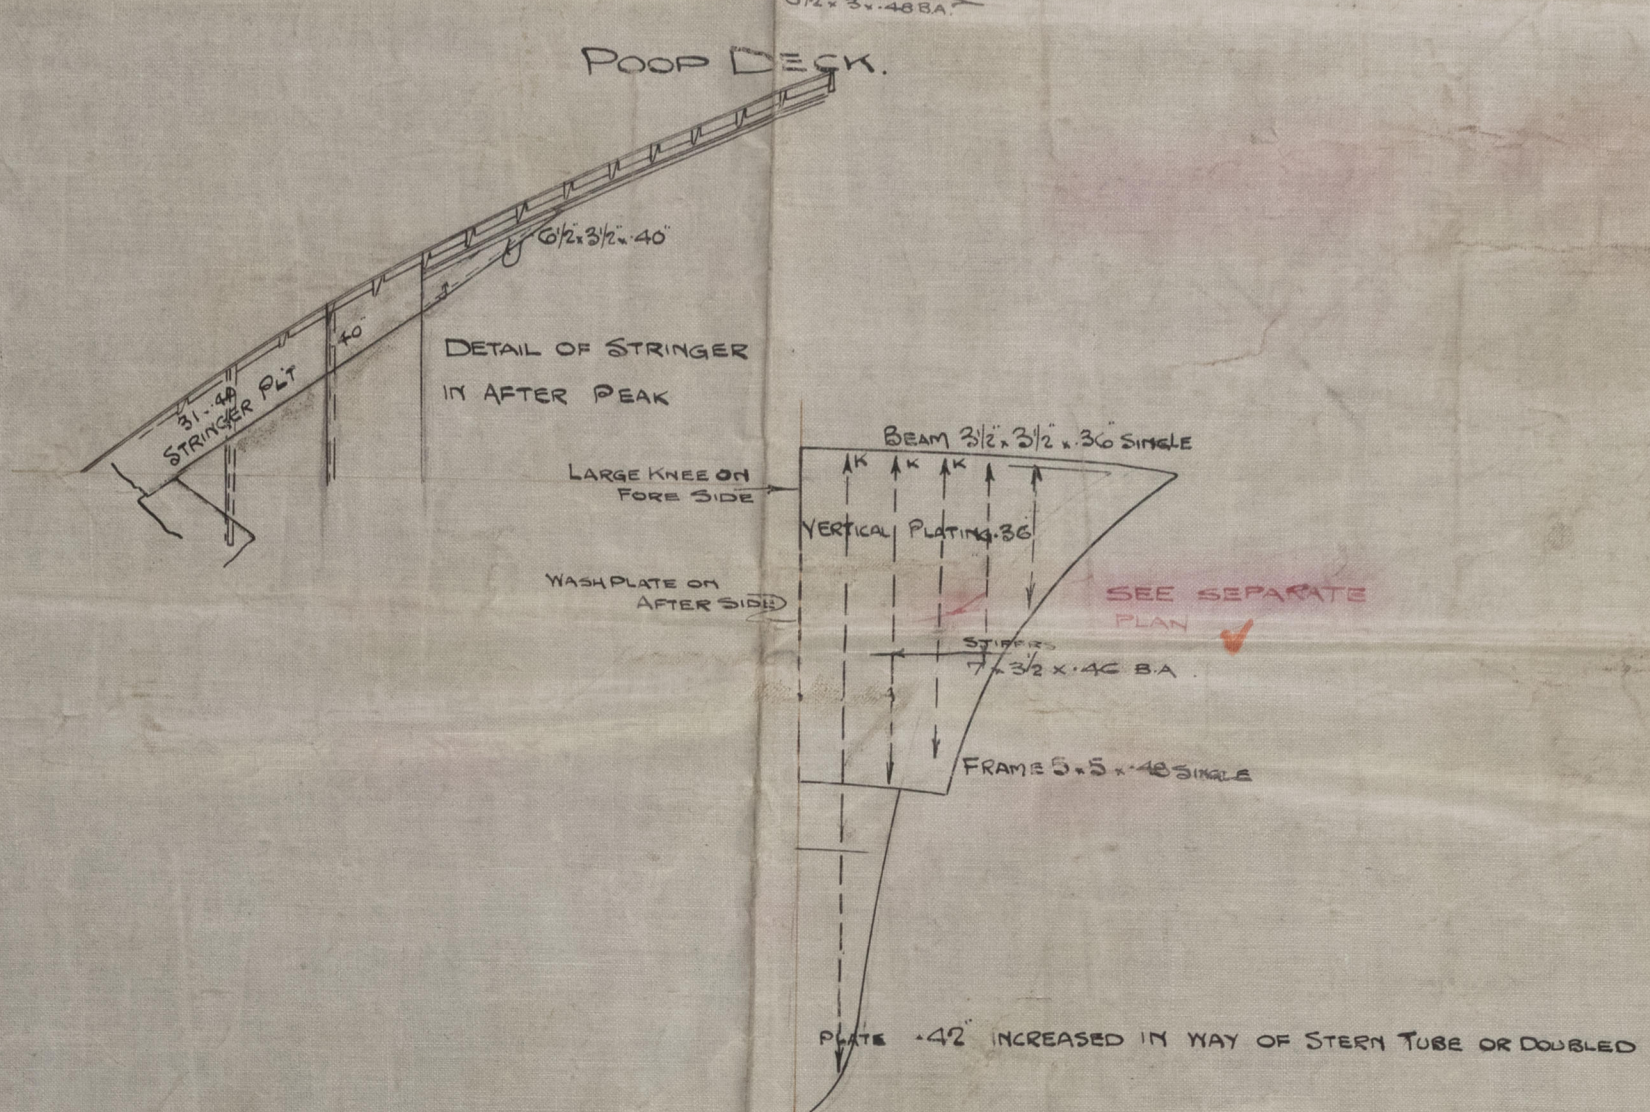 POOP DECK.
6½" x 3½" x .40"
40"
STRINGER PLT
DETAIL OF STRINGER
IN AFTER PEAK
BEAM 3½" x 3½" x .36" SINGLE
LARGE KNEE ON
FORE SIDE
K K K
VERTICAL PLATING .36"
WASHPLATE ON
AFTER SIDE
SEE SEPARATE
PLAN
STIFFRS
7 x 3½ x .46 B.A.
FRAME 5 x 5 x .48 SINGLE
PLATE .42" INCREASED IN WAY OF STERN TUBE OR DOUBLED